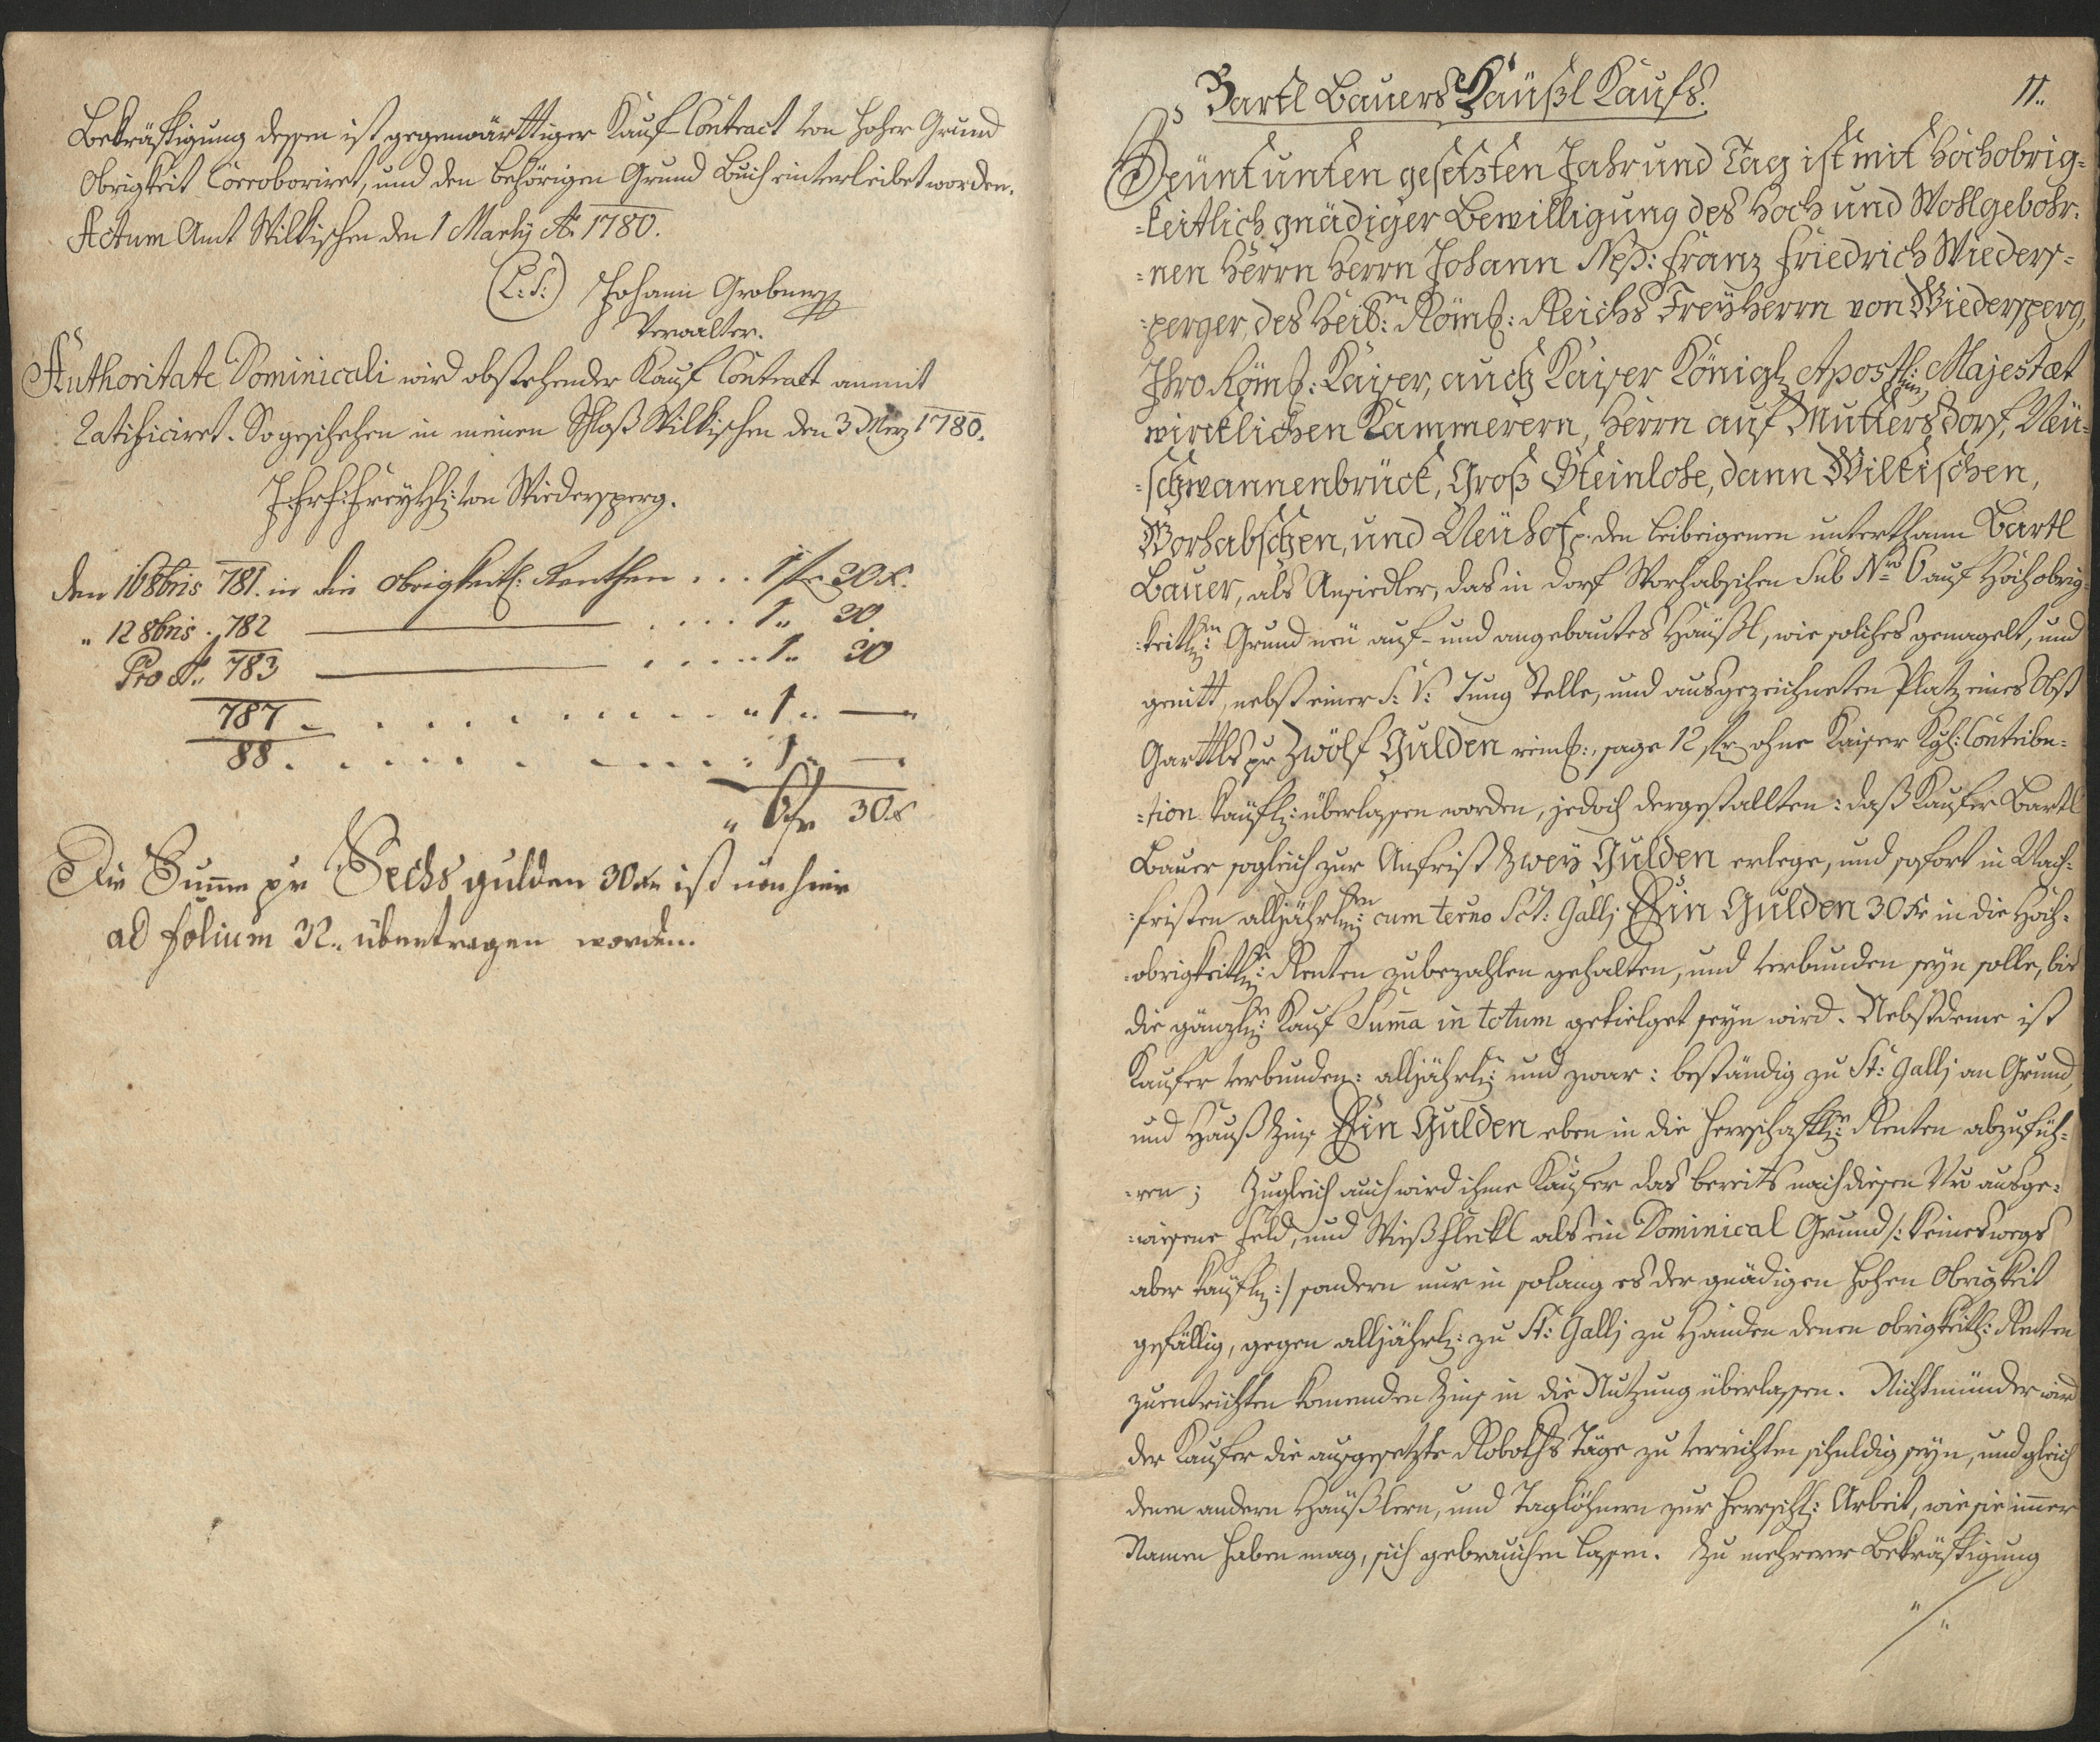 Bekräftigung dessen ist gegenwärttiger Kauf-Contract von hoher Grund
Obrigkeit Corroboriret, und den behörigen Grund Buch einverleibet worden.
Actum Amt Wilkischen den 1 Martij Ao 1780.
(L: S:) Johann Grobner
Verwalter.
Authoritate Dominicali wird obstehender Kauf Contract anmit
Ratificiret. So geschehen in meinen Schloß Wilkischen den 3 Merz 1780.
Freyhh: von Wiedersperg.
den 16 8bris 781. in die obrigkeitl: Renthen . . . 1 fr 30 x.
" 12 8bris . 782 . . . . 1 " 30
Pro Ao: 783 . . . . . 1 " 30
787 . . . . . . . . . . . . " 1 " —
88 . . . . . . . . . . . . 1 " —
" 6 fr 30 x
Die Summe pr Sechs gulden 30 xr ist von hier
ad folium 32 " übertragen worden.
11 "
Bartl Bauers Häußl Kaufs.
Heünt unten gesetzten Jahr und Tag ist mit Hochobrig=
=keitlich gnädiger Bewilligung des Hoch und Wohlgebohr:
=nen Herrn Herrn Johann Nep: Franz Friedrich Wieders=
=perger, des Heil: Röm: Reichs Freyherrn von Wiedersperg,
Ihro Röm: Kaiser, auch Kaiser Königl Apostl: Majestæt
wircklichen Kammerern, Herrn auf Muttersdorf, Neü=
=schwannenbrück, Groß Steinlohe, dann Wilkischen,
Worhabschen, und Neühof p. den Leibeigenen unterthann Bartl
Bauer, als Ansiedler, das in dorf Worhabschen Sub Nro 6 auf Hochobrig
=keitl: Grund neü auf- und angebautes Häußl, wie solches genagelt, und
genitt, nebst einer S: V: Tung Stelle, und ausgezeichneten Platz eines Obst
Garttls pr Zwölf Gulden rein:, sage 12 fr ohne Kaiser Kgl: Contribu=
=tion käufl: überlassen worden, jedoch dergestallten: daß Kaufer Bartl
Bauer sogleich zur Anfrist Zwey Gulden erlege, und sofort in Nach=
=fristen alljährl: cum terno Sct: Gallj Ein Gulden 30 xr in die Hoch=
=obrigkeitl: Renten zubezahlen gehalten, und verbunden seyn solle, bis
die gänzl: Kauf Suma in totum getielget seyn wird. Nebstdeme ist
Kaufer verbunden: alljährl: und zwar: beständig zu St: Gallj an Grund,
und Hauß Zins Ein Gulden eben in die herrschaftl: Renten abzufüh=
=ren; Zugleich auch wird ihme Kaufer das bereits nach diesen Nro ausge=
=wiesene Feld, und Wießfleckl als ein Dominical Grund /: keineswegs
aber käufl: / sondern nur in solang es der gnädigen hohen Obrigkeit
gefällig, gegen alljährl: zu St: Gallj zu Handen denen obrigkeitl: Renten
zuentrichten komenden Zins in die Nutzung überlassen. Nichtmünder wird
der Kaufer die ausgesetzte Roboths Täge zu verrichten schuldig seyn, und gleich
denen andern Häußlern, und Taglöhnern zur herrschl: Arbeit, wie sie imer
Namen haben mag, sich gebrauchen lassen. Zu mehrerer Bekräftigung
"/"